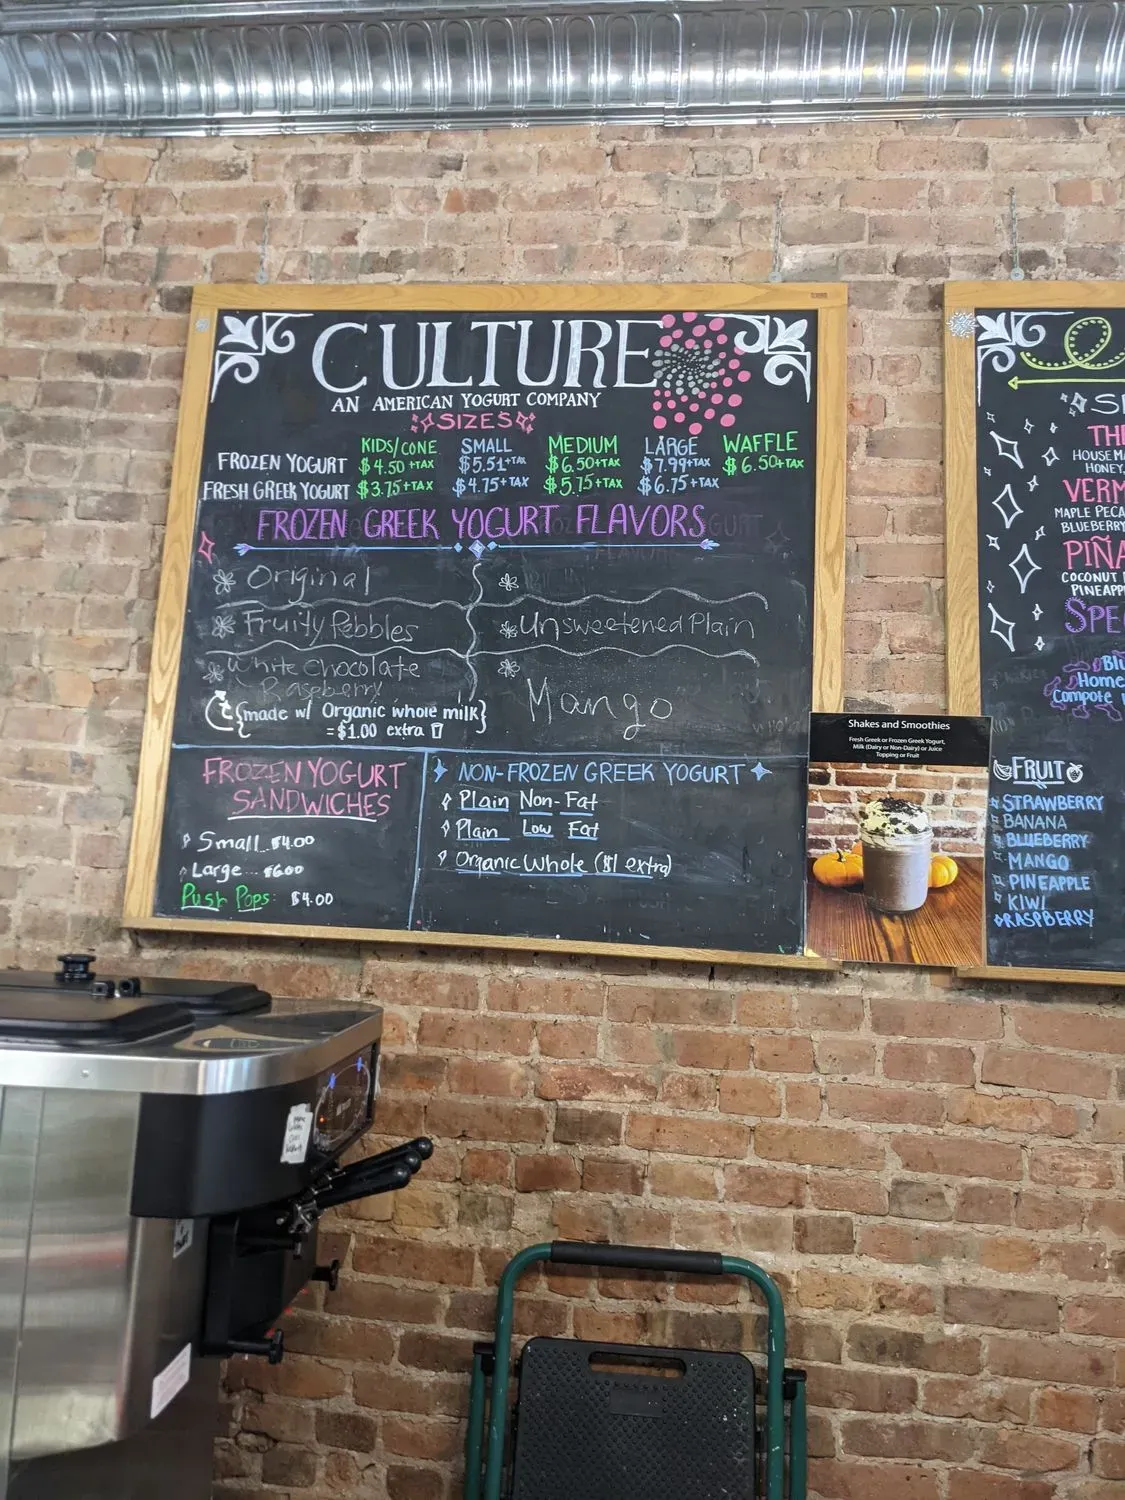 CULTURE
AN AMERICAN YOGURT COMPANY
SIZES
KIDS/CONE SMALL MEDIUM LARGE WAFFLE
FROZEN YOGURT $4.50+TAX $5.51+TAX $6.50+TAX $7.99+TAX $6.50+TAX
FRESH GREEK YOGURT $3.75+TAX $4.75+TAX $5.75+TAX $6.75+TAX
FROZEN GREEK YOGURT FLAVORS
Original
Fruity Pebbles
Unsweetened Plain
White Chocolate
Raspberry
Mango
{made w/ Organic whole milk}
=$1.00 extra
FROZEN YOGURT
SANDWICHES
Small...$4.00
Large...$6.00
Push Pops $4.00
NON-FROZEN GREEK YOGURT
Plain Non-Fat
Plain Low Fat
Organic Whole ($1 extra)
Shakes and Smoothies
Fresh Greek or Frozen Greek Yogurt,
Milk (Dairy or Non-Dairy) or Juice
Topping or Fruit
TH
HOUSE MA
HONEY,
VERM
MAPLE PECA
BLUEBERRY
PIÑA
COCONUT
PINEAPP
SPE
Home
Compote
FRUIT
STRAWBERRY
BANANA
BLUEBERRY
MANGO
PINEAPPLE
KIWI
RASPBERRY